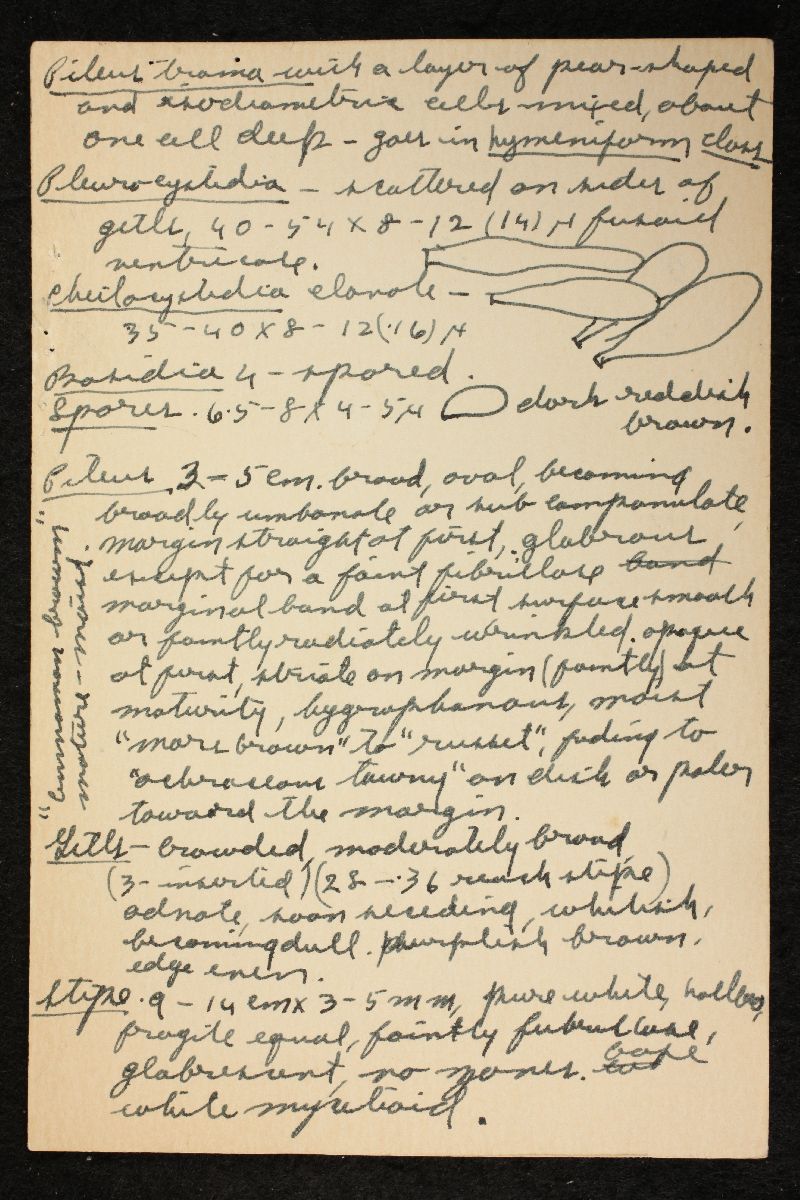 Pileus trama with a layer of pear-shaped
and isodiametric cells mixed, about
one cell deep - goes in hymeniform class
Pleurocystidia - scattered on sides of
gills, 40-54 x 8-12 (14) µ fusoid
ventricose.
Cheilocystidia clavate -
35-40 x 8-12(-16) µ
Basidia 4-spored.
Spores. 6.5-8 x 4-5µ dark reddish
brown.
Pileus 3-5 cm. broad, oval, becoming
broadly umbonate or sub campanulate,
margin straight at first, glabrous
except for a faint fibrillose band
marginal band at first surface smooth
or faintly radiately wrinkled. opaque
at first, striate on margin (faintly) at
maturity, hygrophanous, moist
"mars brown" to "russet", fading to
"ochraceous tawny" on disk or paler
toward the margin.
"cinnamon brown"
mature - moist.
Gills - crowded, moderately broad
(3-inserted) (28-36 reach stipe)
adnate, soon seceding, whitish,
becoming dull purplish brown.
edge even.
Stipe. 9-14 cm x 3-5 mm, pure white, hollow,
fragile equal, faintly fibrillose,
glabrescent, no zones. base
white mycelioid.